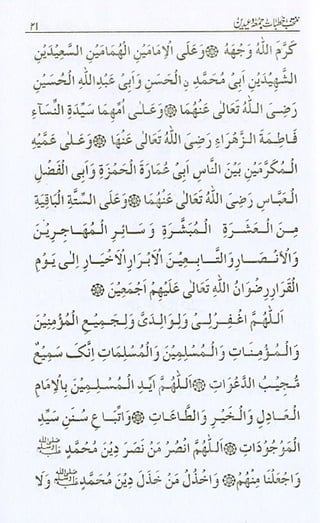 ۲۱ منتخب خطبات جمعہ و عیدین
كَرَّمَ اللهُ وَجْهَهٗ ۞ وَعَلَى الْاِمَامَيْنِ الْهُمَامَيْنِ السَّعِيْدَيْنِ
الشَّهِيْدَيْنِ اَبِىْ مُحَمَّدِ نِ الْحَسَنِ وَاَبِىْ عَبْدِاللهِ الْحُسَيْنِ
رَضِىَ اللهُ تَعَالٰى عَنْهُمَا ۞ وَعَلٰى اُمِّهِمَا سَيِّدَةِ النِّسَآءِ
فَاطِمَةَ الزَّهْرَاءِ رَضِىَ اللهُ تَعَالٰى عَنْهَا ۞ وَعَلٰى عَمَّيْهِ
الْمُكَرَّمَيْنِ بَيْنَ النَّاسِ اَبِىْ عُمَارَةَ الْحَمْزَةِ وَاَبِى الْفَضْلِ
الْعَبَّاسِ رَضِىَ اللهُ تَعَالٰى عَنْهُمَا ۞ وَعَلَى السِّتَّةِ الْبَاقِيَةِ
مِنَ الْعَشَرَةِ الْمُبَشَّرَةِ وَ سَائِرِ الْمُهَاجِرِيْنَ
وَالْاَنْصَارِ وَالتَّابِعِيْنَ الْاَبْرَارِ الْاَخْيَارِ اِلٰى يَوْمِ
الْقَرَارِ رِضْوَانُ اللهِ تَعَالٰى عَلَيْهِمْ اَجْمَعِيْنَ ۞
اَللّٰهُمَّ اغْفِرْلِىْ وَلِوَالِدَىَّ وَلِجَمِيْعِ الْمُؤْمِنِيْنَ
وَالْمُؤْمِنَاتِ وَالْمُسْلِمِيْنَ وَالْمُسْلِمَاتِ اِنَّكَ سَمِيْعٌ
مُّجِيْبُ الدَّعَوَاتِ ۞ اَللّٰهُمَّ اَيِّدِ الْمُسْلِمِيْنَ بِالْاِمَامِ
الْعَادِلِ وَالْخَيْرِ وَالطَّاعَاتِ ۞ وَاتِّبَاعِ سُنَنِ سَيِّدِ
الْمَوْجُوْدَاتِ ۞ اَللّٰهُمَّ انْصُرْ مَنْ نَصَرَ دِيْنَ مُحَمَّدٍ ﷺ
وَاجْعَلْنَا مِنْهُمْ ۞ وَاخْذُلْ مَنْ خَذَلَ دِيْنَ مُحَمَّدٍ ﷺ وَلَا